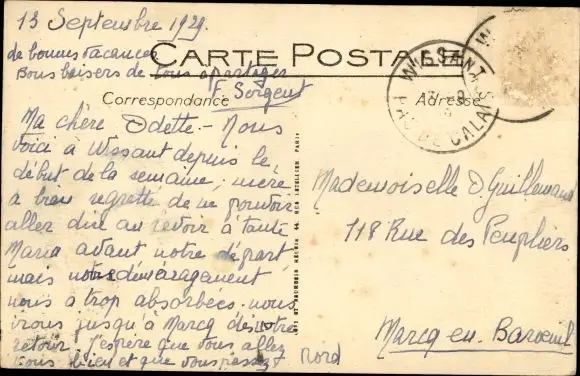 13 Septembre 1929
de bonnes vacances
Bons baisers de tous à partager
F. Sergent
CARTE POSTALE
Correspondance
Adresse
WISSANT
PAS DE CALAIS
Ma chère Odette - Nous
voici à Wissant depuis le
début de la semaine, mère
a bien regretté de ne pouvoir
aller dire au revoir à tante
Maria avant notre départ
mais notre déménagement
nous a trop absorbées. nous
irons jusqu'à Marcq dès notre
retour. J'espère que vous allez
tous bien et que vous passez
Mademoiselle O Guillemaud
118 Rue des Peupliers
Marcq-en-Baroeul
Nord